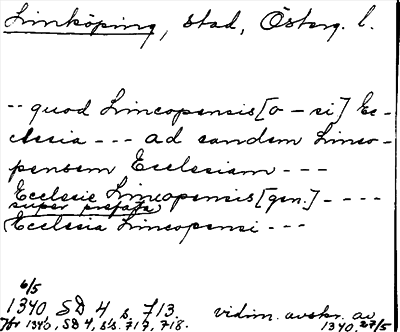 Linköping, stad, Österg. l.
-- quod Lincopensis [o - si] Ec-
clesia --- ad eandem Linco-
pensem Ecclesiam ---
Ecclesie Lincopensis [gen.] ----
super prefata
Ecclesia Lincopensi ---
6/5
1340, SD 4 s. 713. vidim. avskr. av
Jfr 1340, SD 4, s's. 717, 718. 1340 27/5